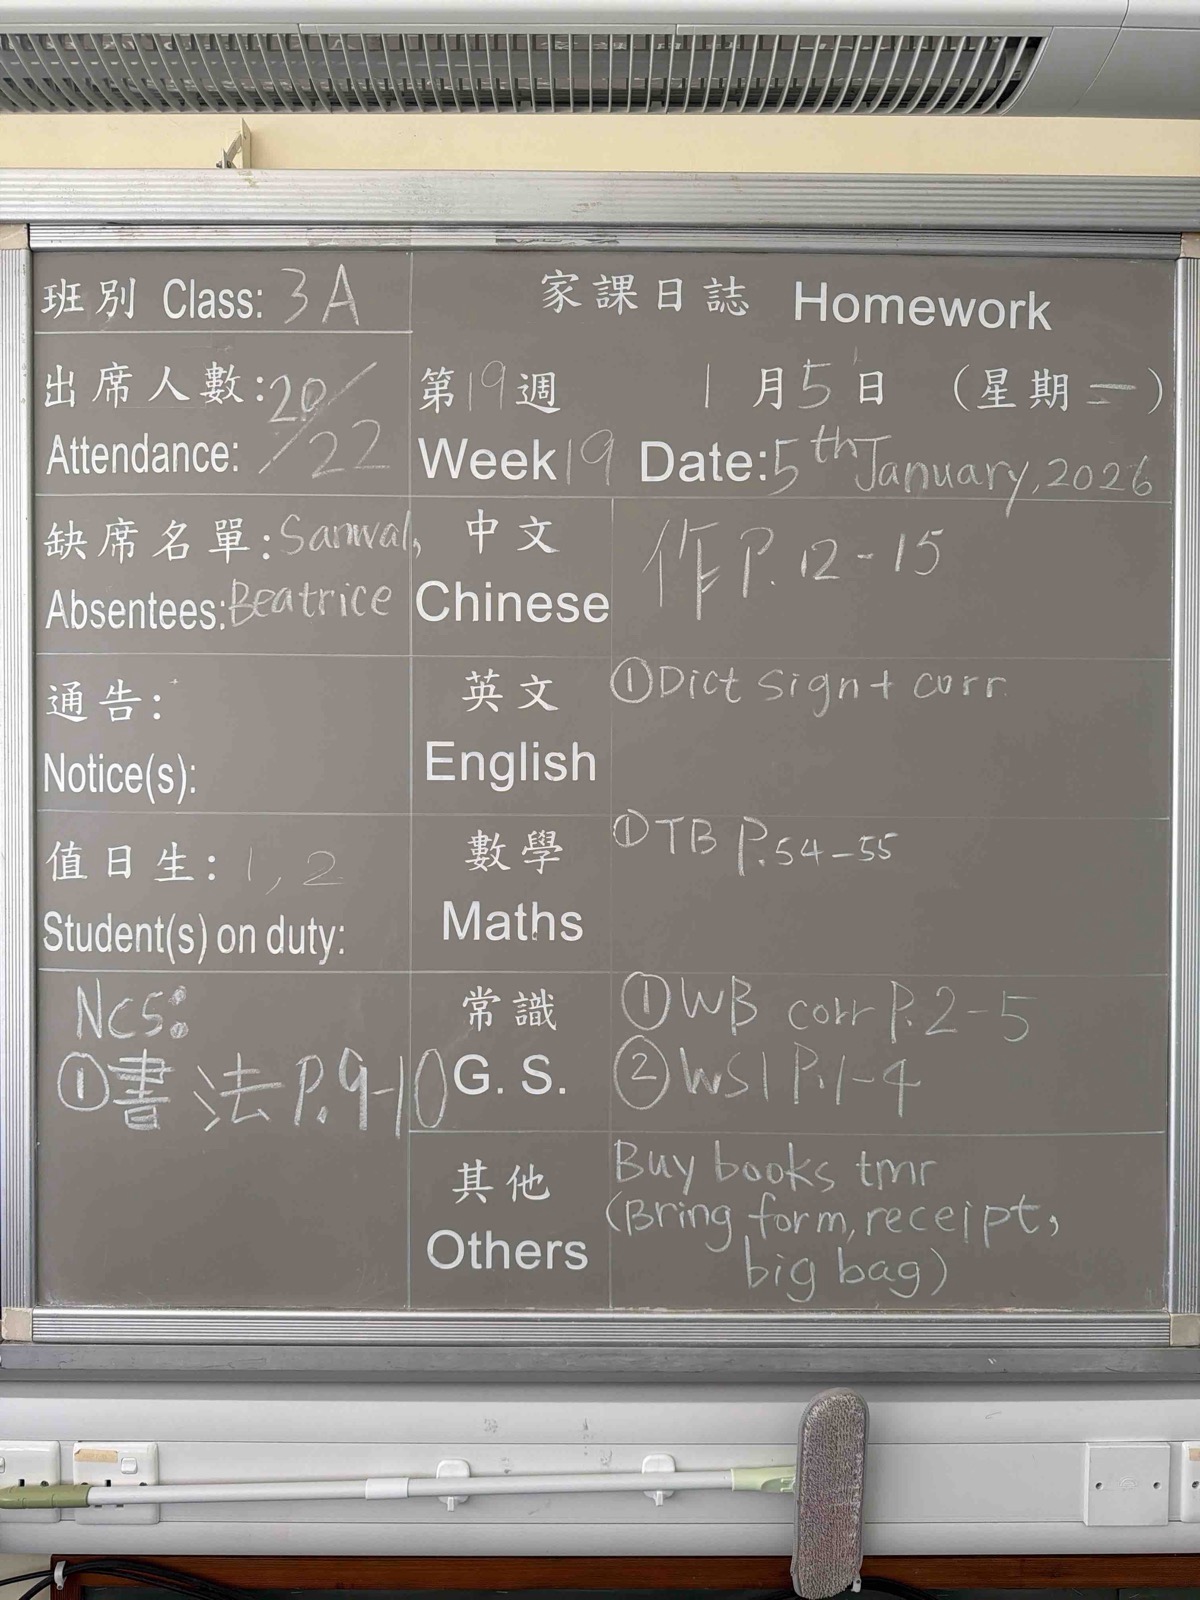 班別 Class: 3A
家課日誌 Homework
出席人數: 20/22
Attendance:
第19週 1月5日 (星期一)
Week 19 Date: 5th January, 2026
缺席名單: Sanwal,
Absentees: Beatrice
中文
Chinese
作 P. 12-15
通告:
Notice(s):
英文
English
① Dict sign + corr
值日生: 1, 2
Student(s) on duty:
數學
Maths
① TB P.54-55
NCS:
① 書法 P.9-10
常識
G. S.
① WB corr P.2-5
② WS1 P.1-4
其他
Others
Buy books tmr
(Bring form, receipt,
big bag)